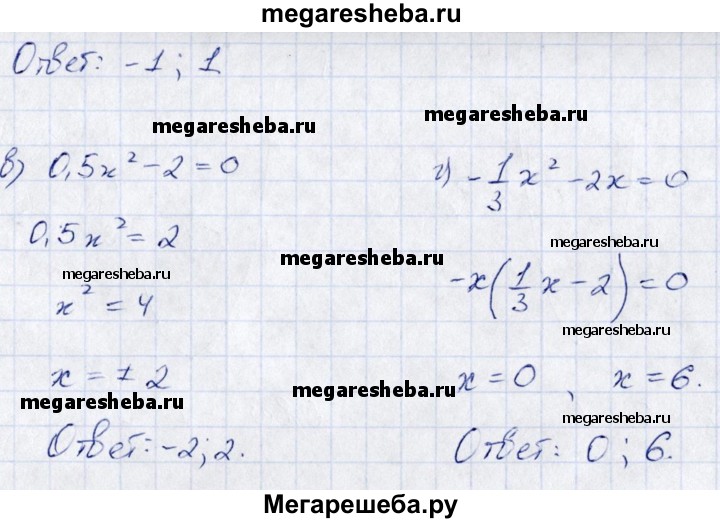 megaresheba.ru
Ответ: -1; 1
megaresheba.ru
megaresheba.ru
в) 0,5x² - 2 = 0
г) -1/3 x² - 2x = 0
0,5x² = 2
megaresheba.ru
megaresheba.ru
megaresheba.ru
x² = 4
-x(1/3 x - 2) = 0
megaresheba.ru
x = ± 2
x = 0, x = 6.
megaresheba.ru
megaresheba.ru
megaresheba.ru
Ответ: -2; 2.
Ответ: 0; 6.
Мегарешеба.ру